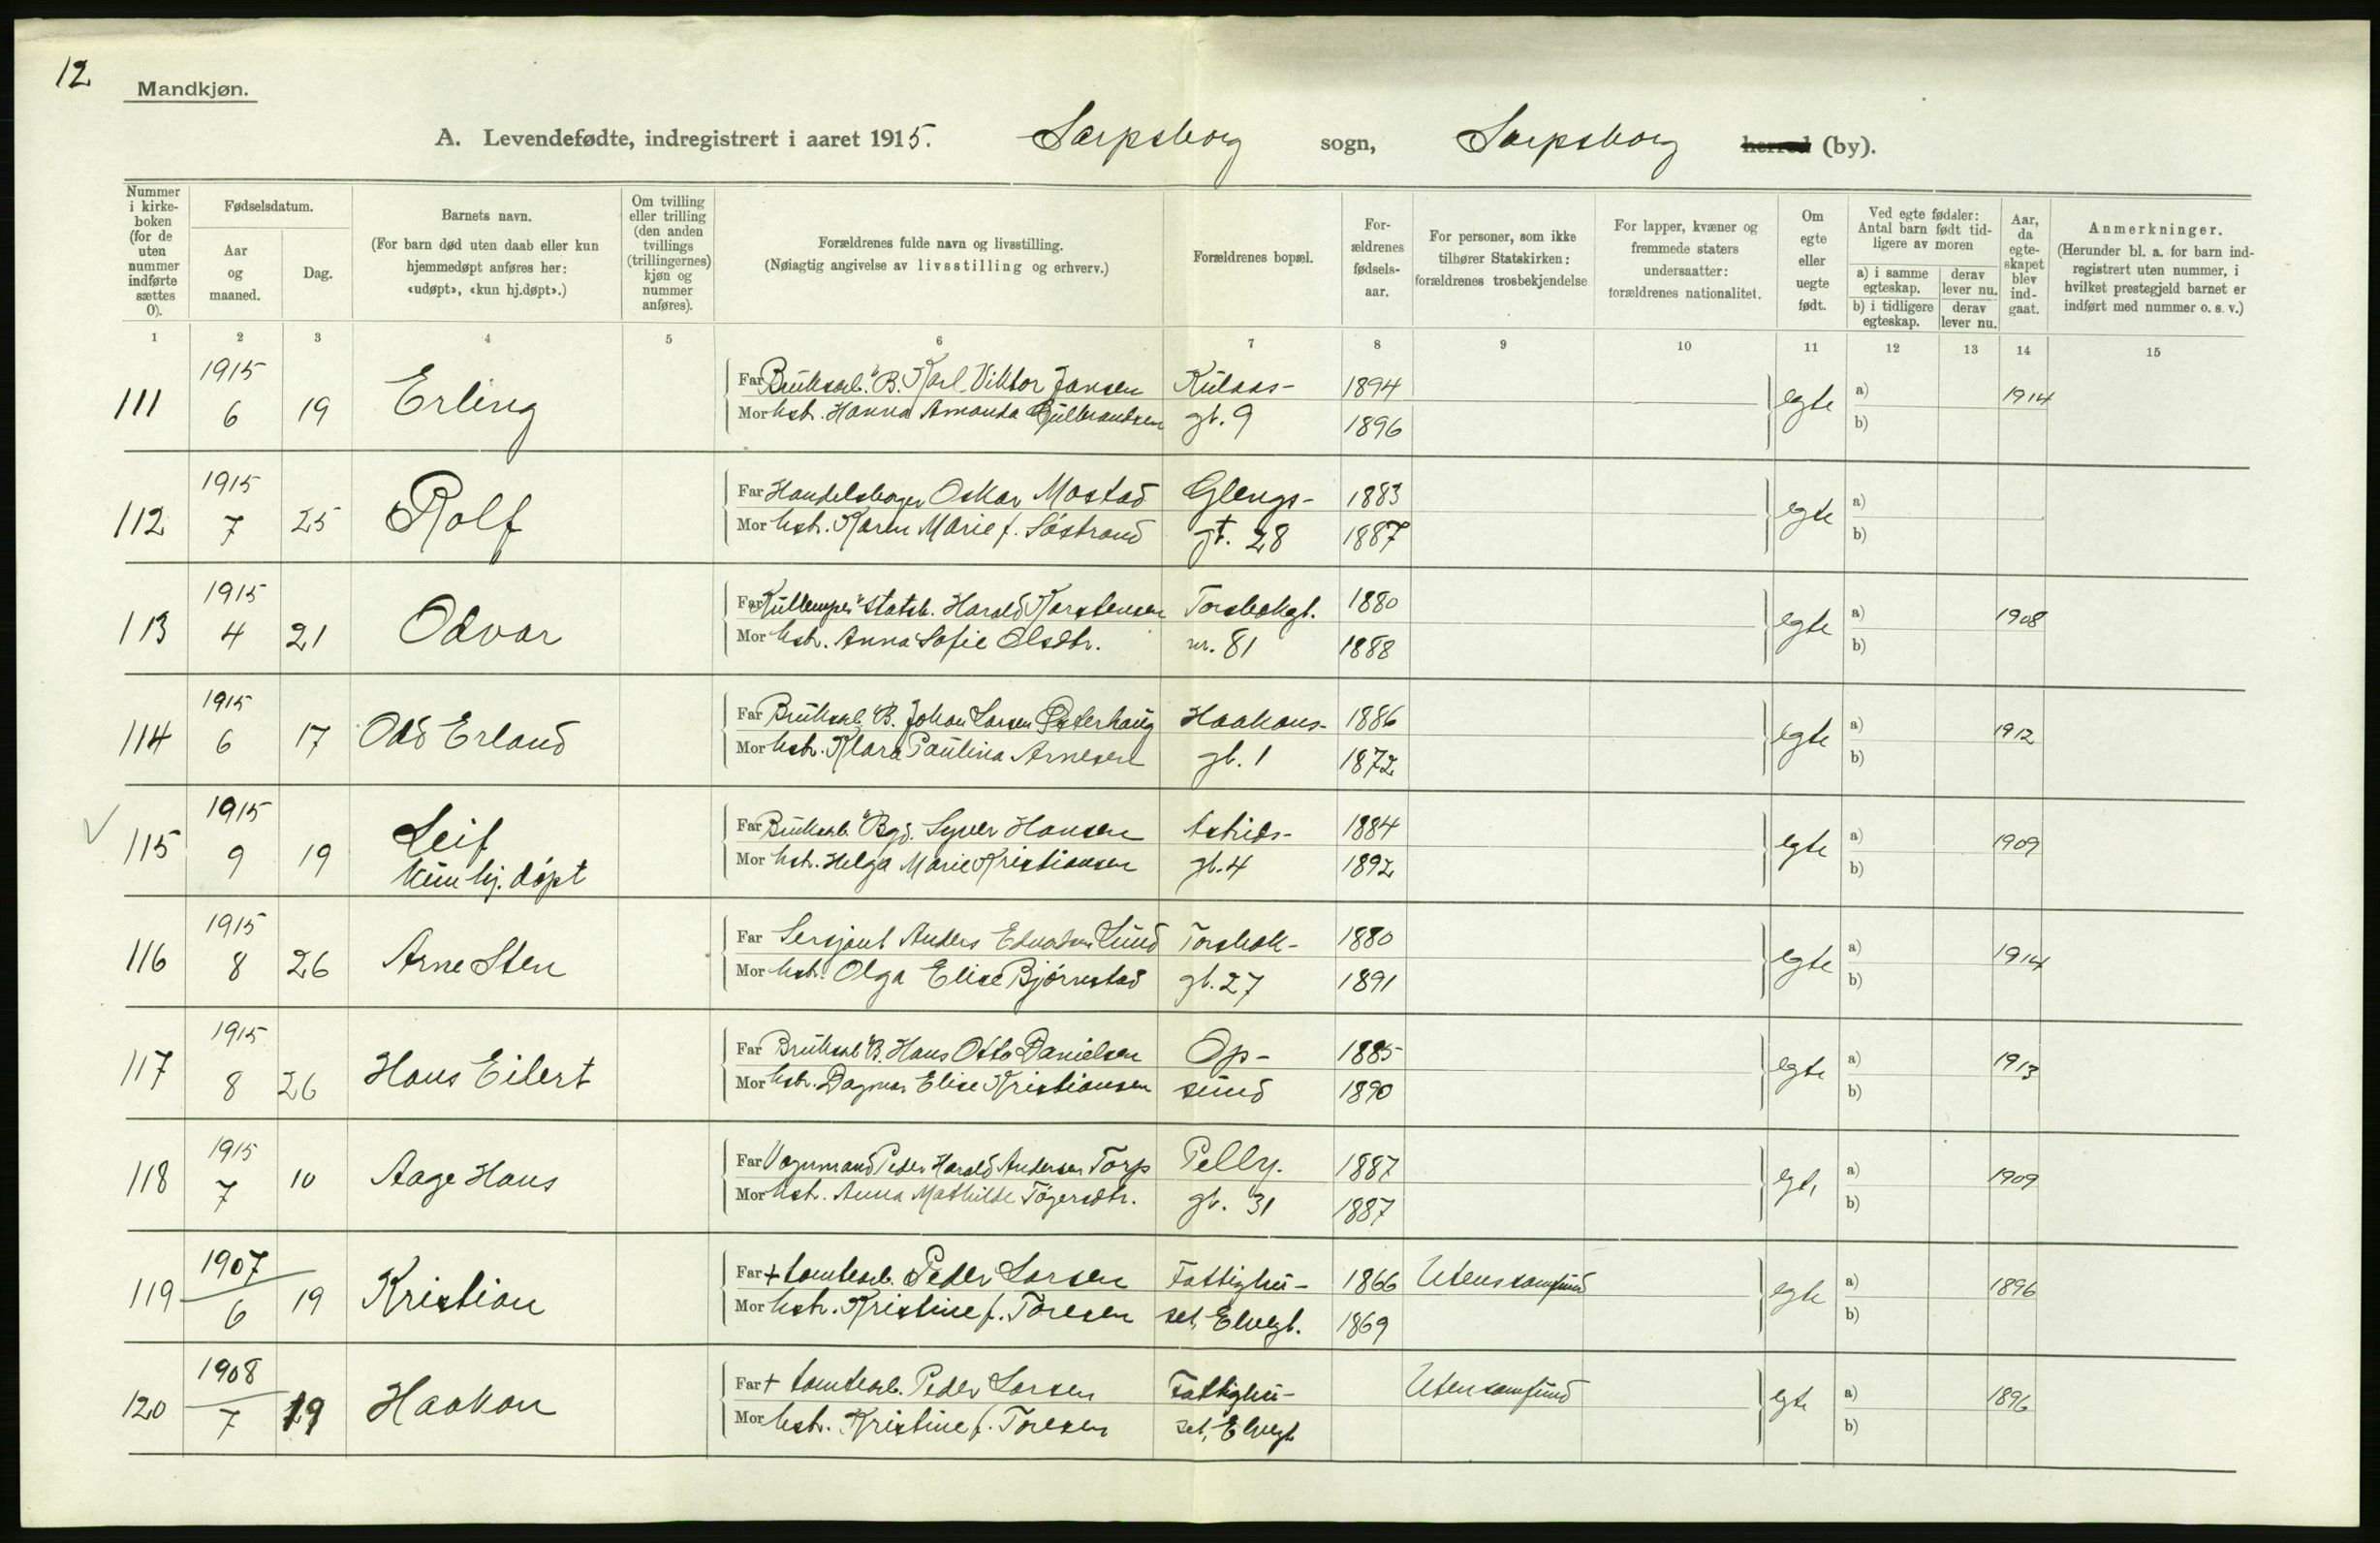 12
Mandkjøn.
A. Levendefødte, indregistrert i aaret 1915. Sarpsborg sogn, Sarpsborg herred (by).
Nummer i kirke-boken (for de uten nummer indførte sættes 0).
Fødselsdatum.
Aar og maaned.
Dag.
Barnets navn.
(For barn død uten daab eller kun hjemmedøpt anføres her: «udøpt», «kun hj.døpt».)
Om tvilling eller trilling (den anden tvillings (trillingernes) kjøn og nummer anføres).
Forældrenes fulde navn og livsstilling.
(Nøiagtig angivelse av livsstilling og erhverv.)
Forældrenes bopæl.
For-ældrenes fødsels-aar.
For personer, som ikke tilhører Statskirken: forældrenes trosbekjendelse
For lapper, kvæner og fremmede staters undersaatter: forældrenes nationalitet.
Om egte eller uegte født.
Ved egte fødsler: Antal barn født tid-ligere av moren
a) i samme egteskap.
derav lever nu.
b) i tidligere egteskap.
derav lever nu.
Aar, da egte-skapet blev ind-gaat.
Anmerkninger.
(Herunder bl. a. for barn ind-registrert uten nummer, i hvilket prestegjeld barnet er indført med nummer o. s. v.)
1 2 3 4 5 6 7 8 9 10 11 12 13 14 15
111 1915 6 19 Erling
Far Bruksarb. B. Karl Viktor Jansen Kulaas- 1894 egte a) 1914
Mor hstr. Hanna Amanda Gulbrandsen gt. 9 1896 b)
112 1915 7 25 Rolf
Far Handelsborger Oskar Mostad Glengs- 1883 egte a)
Mor hstr. Karen Marie f. Söstrand gt. 28 1887 b)
113 1915 4 21 Odvar
Far Kullemper Statsb. Harald Karstensen Torsbekgt. 1880 egte a) 1908
Mor hstr. Anna Sofie Olsdtr. nr. 81 1888 b)
114 1915 6 17 Odd Erland
Far Bruksarb. B. Johan Larsen Østerhaug Haakons- 1886 egte a) 1912
Mor hstr. Klara Paulina Arnesen gt. 1 1872 b)
115 1915 9 19 Leif
kun hj. døpt
Far Bruksarb. Bgd. Syver Hansen Astrids- 1884 egte a) 1909
Mor hstr. Helga Marie Kristiansen gt. 4 1892 b)
116 1915 8 26 Arne Sten
Far Sersjant Anders Edvardsen Lund Torsbek- 1880 egte a) 1914
Mor hstr. Olga Elise Bjørnstad gt. 27 1891 b)
117 1915 8 26 Hans Eilert
Far Bruksarb B. Hans Otto Danielsen Op- 1885 egte a) 1913
Mor hstr. Dagmar Elise Kristiansen sund 1890 b)
118 1915 7 10 Aage Hans
Far Vognmand Peder Harald Andersen Torp Pelly. 1887 egt, a) 1909
Mor hstr. Anna Mathilde Tögersdtr. gt. 31 1887 b)
119 1907 6 19 Kristian
Far + tomtearb. Peder Larsen Fattighu- 1866 Utens samfund egte a) 1896
Mor hstr. Kristine f. Toresen set, Elvegt. 1869 b)
120 1908 7 19 Haakon
Far + tomtearb. Peder Larsen Fattighu- Uten samfund egte a) 1896
Mor hstr. Kristine f. Toresen set, Elvegt b)